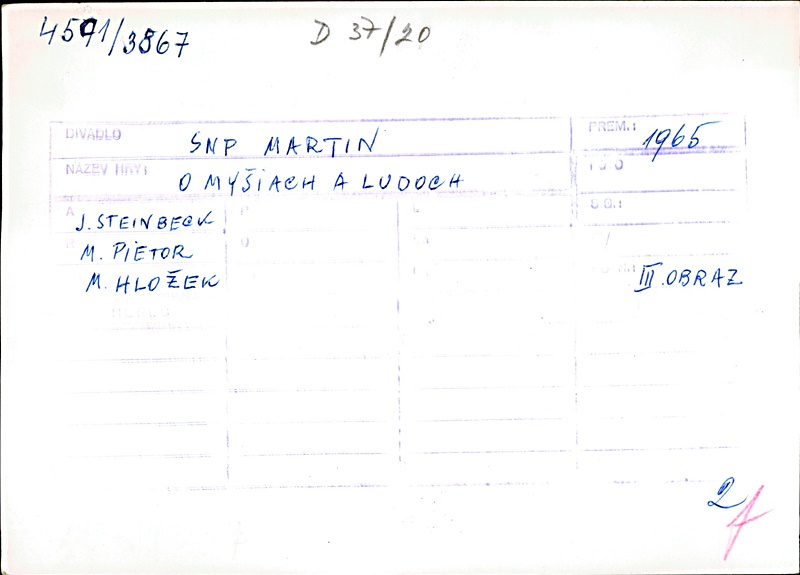 4591/3867
D 37/20
DIVADLO SNP MARTIN
PREM.: 1965
NÁZEV HRY: O MYŠIACH A LUDOCH
S.G.:
A J. STEINBECK
M. PIETOR
M. HLOŽEK
III. OBRAZ
2